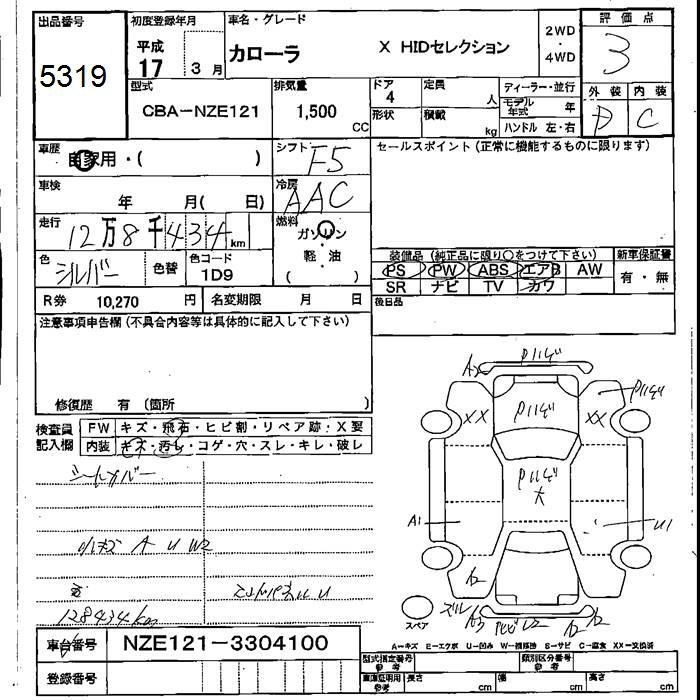 出品番号
5319
初度登録年月
平成
17 3 月
車名・グレード
カローラ X HIDセレクション
2WD
・
4WD
評価点
3
外装 内装
D C
型式
CBA-NZE121
排気量
1,500
CC
ドア
4
形状
定員
人
積載
kg
ディーラー・並行
モデル年式 年
ハンドル 左・右
車歴
自家用・( )
シフト
F5
車検
年 月( 日)
冷房
AAC
走行
12万8千434 km
燃料
ガソリン
・
軽 油
( )
色
シルバー
色替
色コード
1D9
R券 10,270 円
名変期限 月 日
セールスポイント(正常に機能するものに限ります)
装備品 (純正品に限り○をつけて下さい)
PS PW ABS エアB AW
SR ナビ TV カワ
新車保証書
有・無
後日品
注意事項申告欄(不具合内容等は具体的に記入して下さい)
修復歴 有 (箇所 )
検査員
記入欄
FW キズ・飛石・ヒビ割・リペア跡・X要
内装 キズ・汚れ・コゲ・穴・スレ・キレ・破レ
シートカバー
A U W2
128434km
XX
XX
A1
U1
スペア
A-キズ E-エクボ U-凹み W-補修跡 S-サビ C-腐食 XX-交換済
車台番号 NZE121-3304100
登録番号
型式指定番号
参考
類別区分番号
参考
車庫証明用
参考
長さ cm
幅 cm
高さ cm